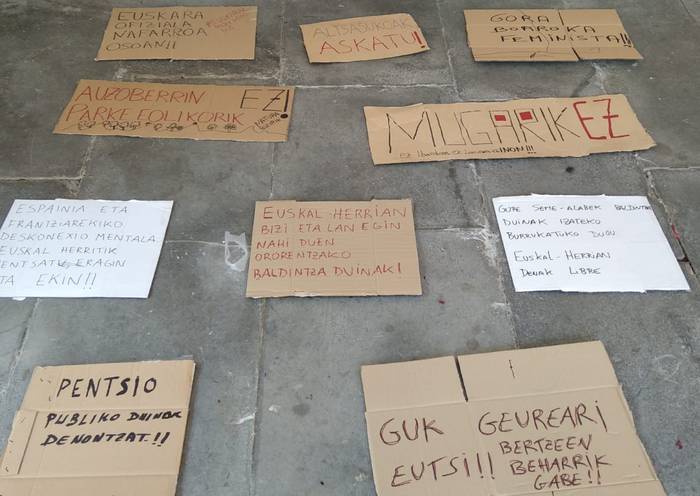 EUSKARA
OFIZIALA
NAFARROA
OSOAN!!
ALTSASUKOAK
ASKATU!
GORA
BORROKA
FEMINISTA!!
AUZOBERRIN EZ!
PARKE EOLIKORIK
MUGARIK EZ
INON!!!
ESPAINIA ETA
FRANTZIAREKIKO
DESKONEXIO MENTALA.
EUSKAL HERRITIK
PENTSATU, ERAGIN
TA EKIN!!
EUSKAL-HERRIAN
BIZI ETA LAN EGIN
NAHI DUEN
ORORENTZAKO
BALDINTZA DUINAK!
GURE SEME-ALABEK BALDINTZA
DUINAK IZATEKO
BURRUKATUKO DUGU
EUSKAL-HERRIAN
DENAK LIBRE
PENTSIO
PUBLIKO DUINAK
DENONTZAT.!!
GUK GEUREARI
EUTSI!!! BERTZEEN
BEHARRIK
GABE!!